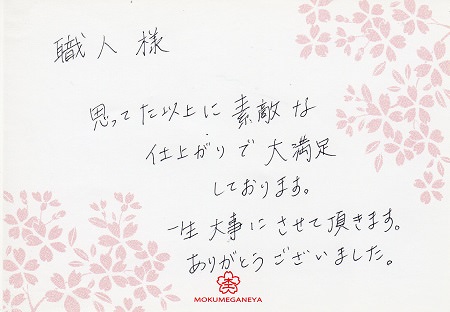 職人様
思ってた以上に素敵な
仕上がりで大満足
しております。
一生大事にさせて頂きます。
ありがとうございました。
MOKUMEGANEYA